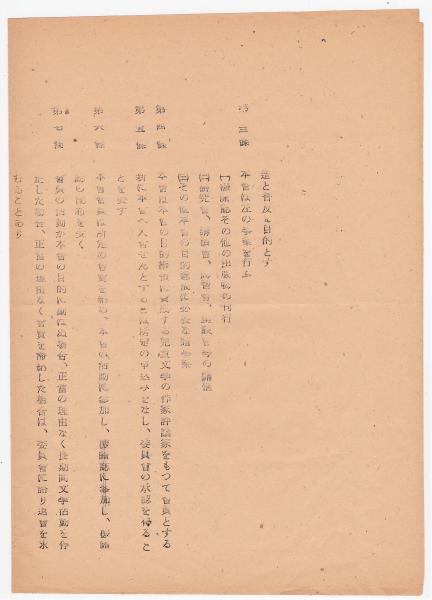 造と普及を目的とす
第三條 本會は左の事業を行ふ
(一)機関誌その他の出版物の刊行
(二)研究會、講演會、等の開催
(三)その他本會の目的達成に必要な諸事業
第四條 本會は本會の目的に賛成する児童文學の作家評論家をもつて會員とする
第五條 新に本會へ入會せんとするには所定の申込みをなし、委員會の承認を得るこ
とを要す
第六條 本會會員は所定の會費を納め、本會の活動に参加し、機関誌に参加し、機関
誌の配布を受く
第七條 會員の活動が本會の目的に副はぬ場合、正當の理由なく長期間文學活動を停
止した場合、正當の理由なく會費を滞納した場合は、委員會に諮り退會を求
むることあり